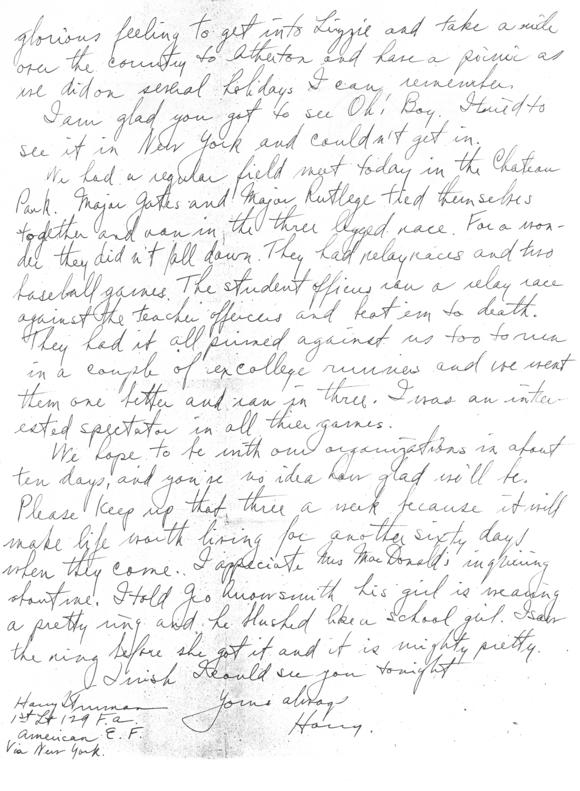 glorious feeling to get into Lizzie and take a mile
over the country to Atherton and have a picnic as
we did on several holidays I can remember.
I am glad you got to see Oh! Boy. I tried to
see it in New York and couldn't get in.
We had a regular field meet today in the Chateau
Park. Major Gates and Major Rutlege tied themselves
together and ran in the three legged race. For a won-
der they didn't fall down. They had relay races and two
baseball games. The student officers ran a relay race
against the teacher officers and beat em to death.
They had it all primed against us too to run
in a couple of excollege runners and we went
them one better and ran in three. I was an inter-
ested spectator in all their games.
We hope to be with our organizations in about
ten days, and you've no idea how glad we'll be.
Please keep up that three a week because it will
make life worth living for another sixty days
when they come. I appreciate Mrs MacDonald's inquiring
about me. I told Geo Arrowsmith his girl is wearing
a pretty ring and he blushed like a school girl. I saw
the ring before she got it and it is mighty pretty.
I wish I could see you tonight
Yours always
Harry.
Harry S Truman
1st Lt 129 F.a.
American E. F.
Via New York.